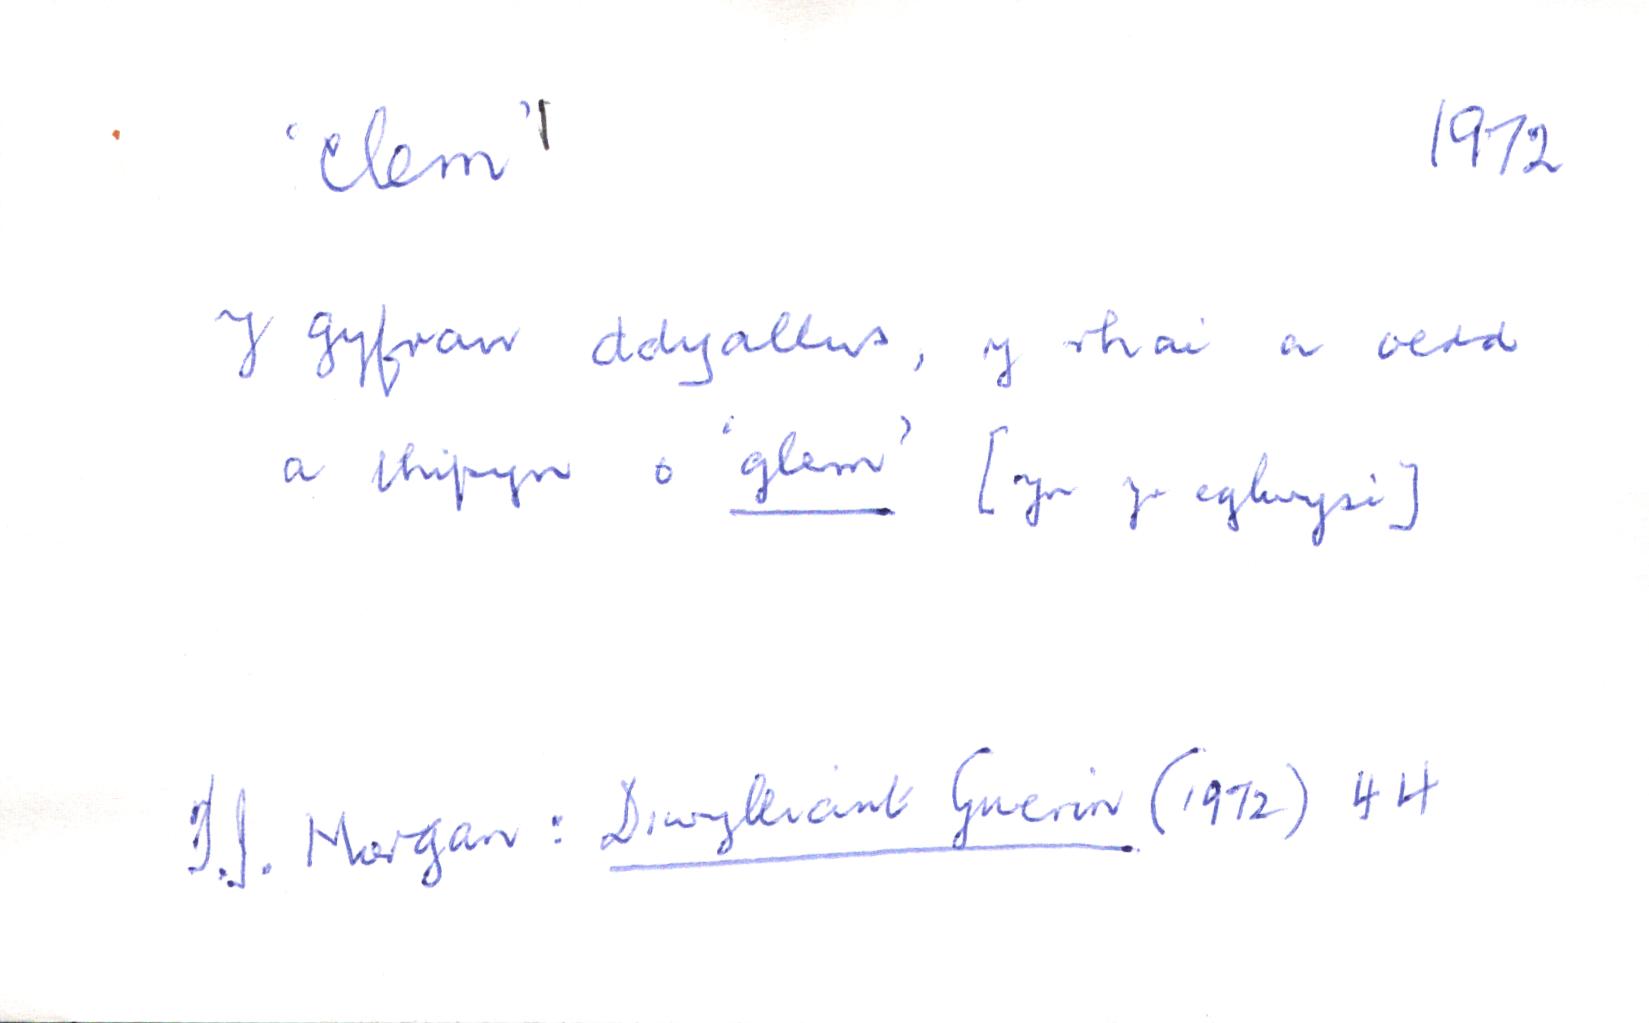 'clem'1 1972
Y gyfran ddyallus, y rhai a oedd
a thipyn o 'glem' [yn yr eglwysi]
T.J. Morgan: Diwylliant Gwerin (1972) 44